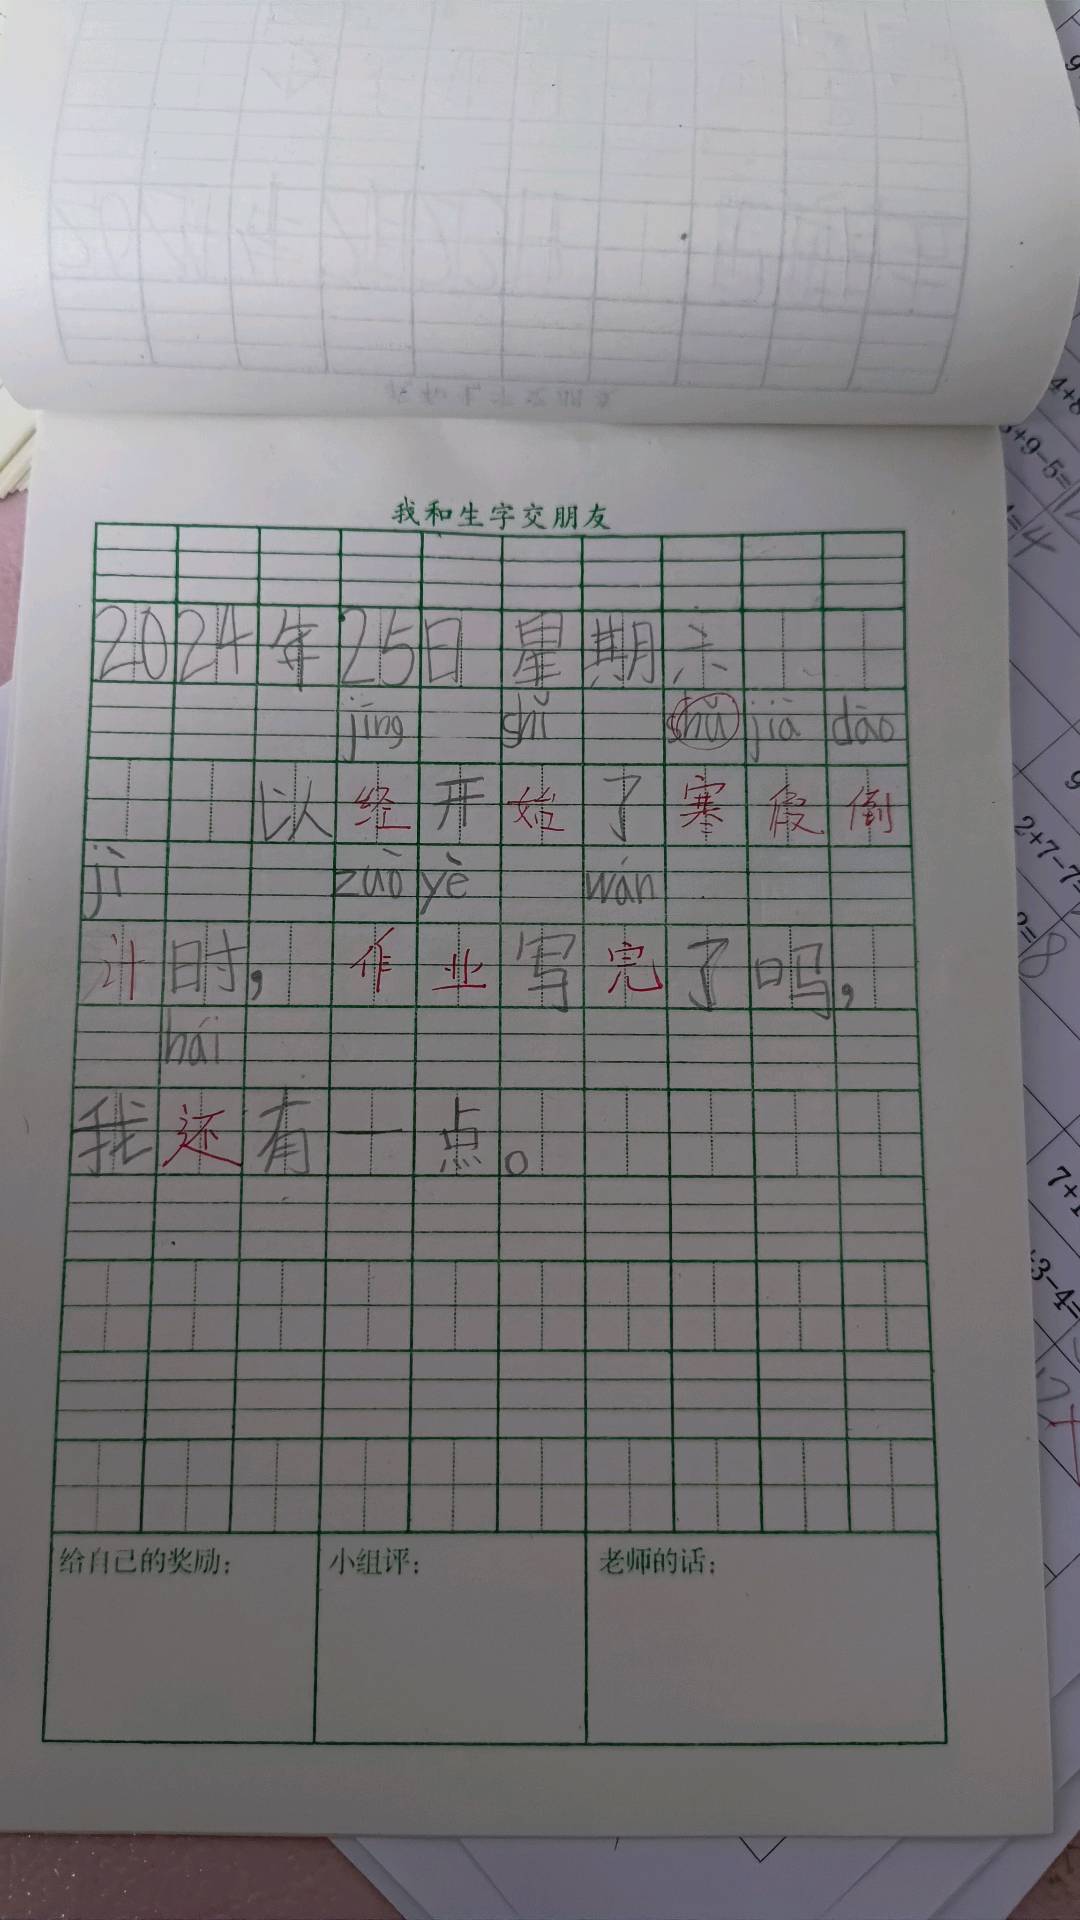 我和生字交朋友
2024年25日 星期六
jīng shǐ shǔ jià dào
以经开始了寒假倒
jì zuò yè wán
计时，作业写完了吗，
hái
我还有一点。
给自己的奖励：
小组评：
老师的话：
4+8
3+9-5=
=14
2+7-7=
=8
7+1
+3-4=